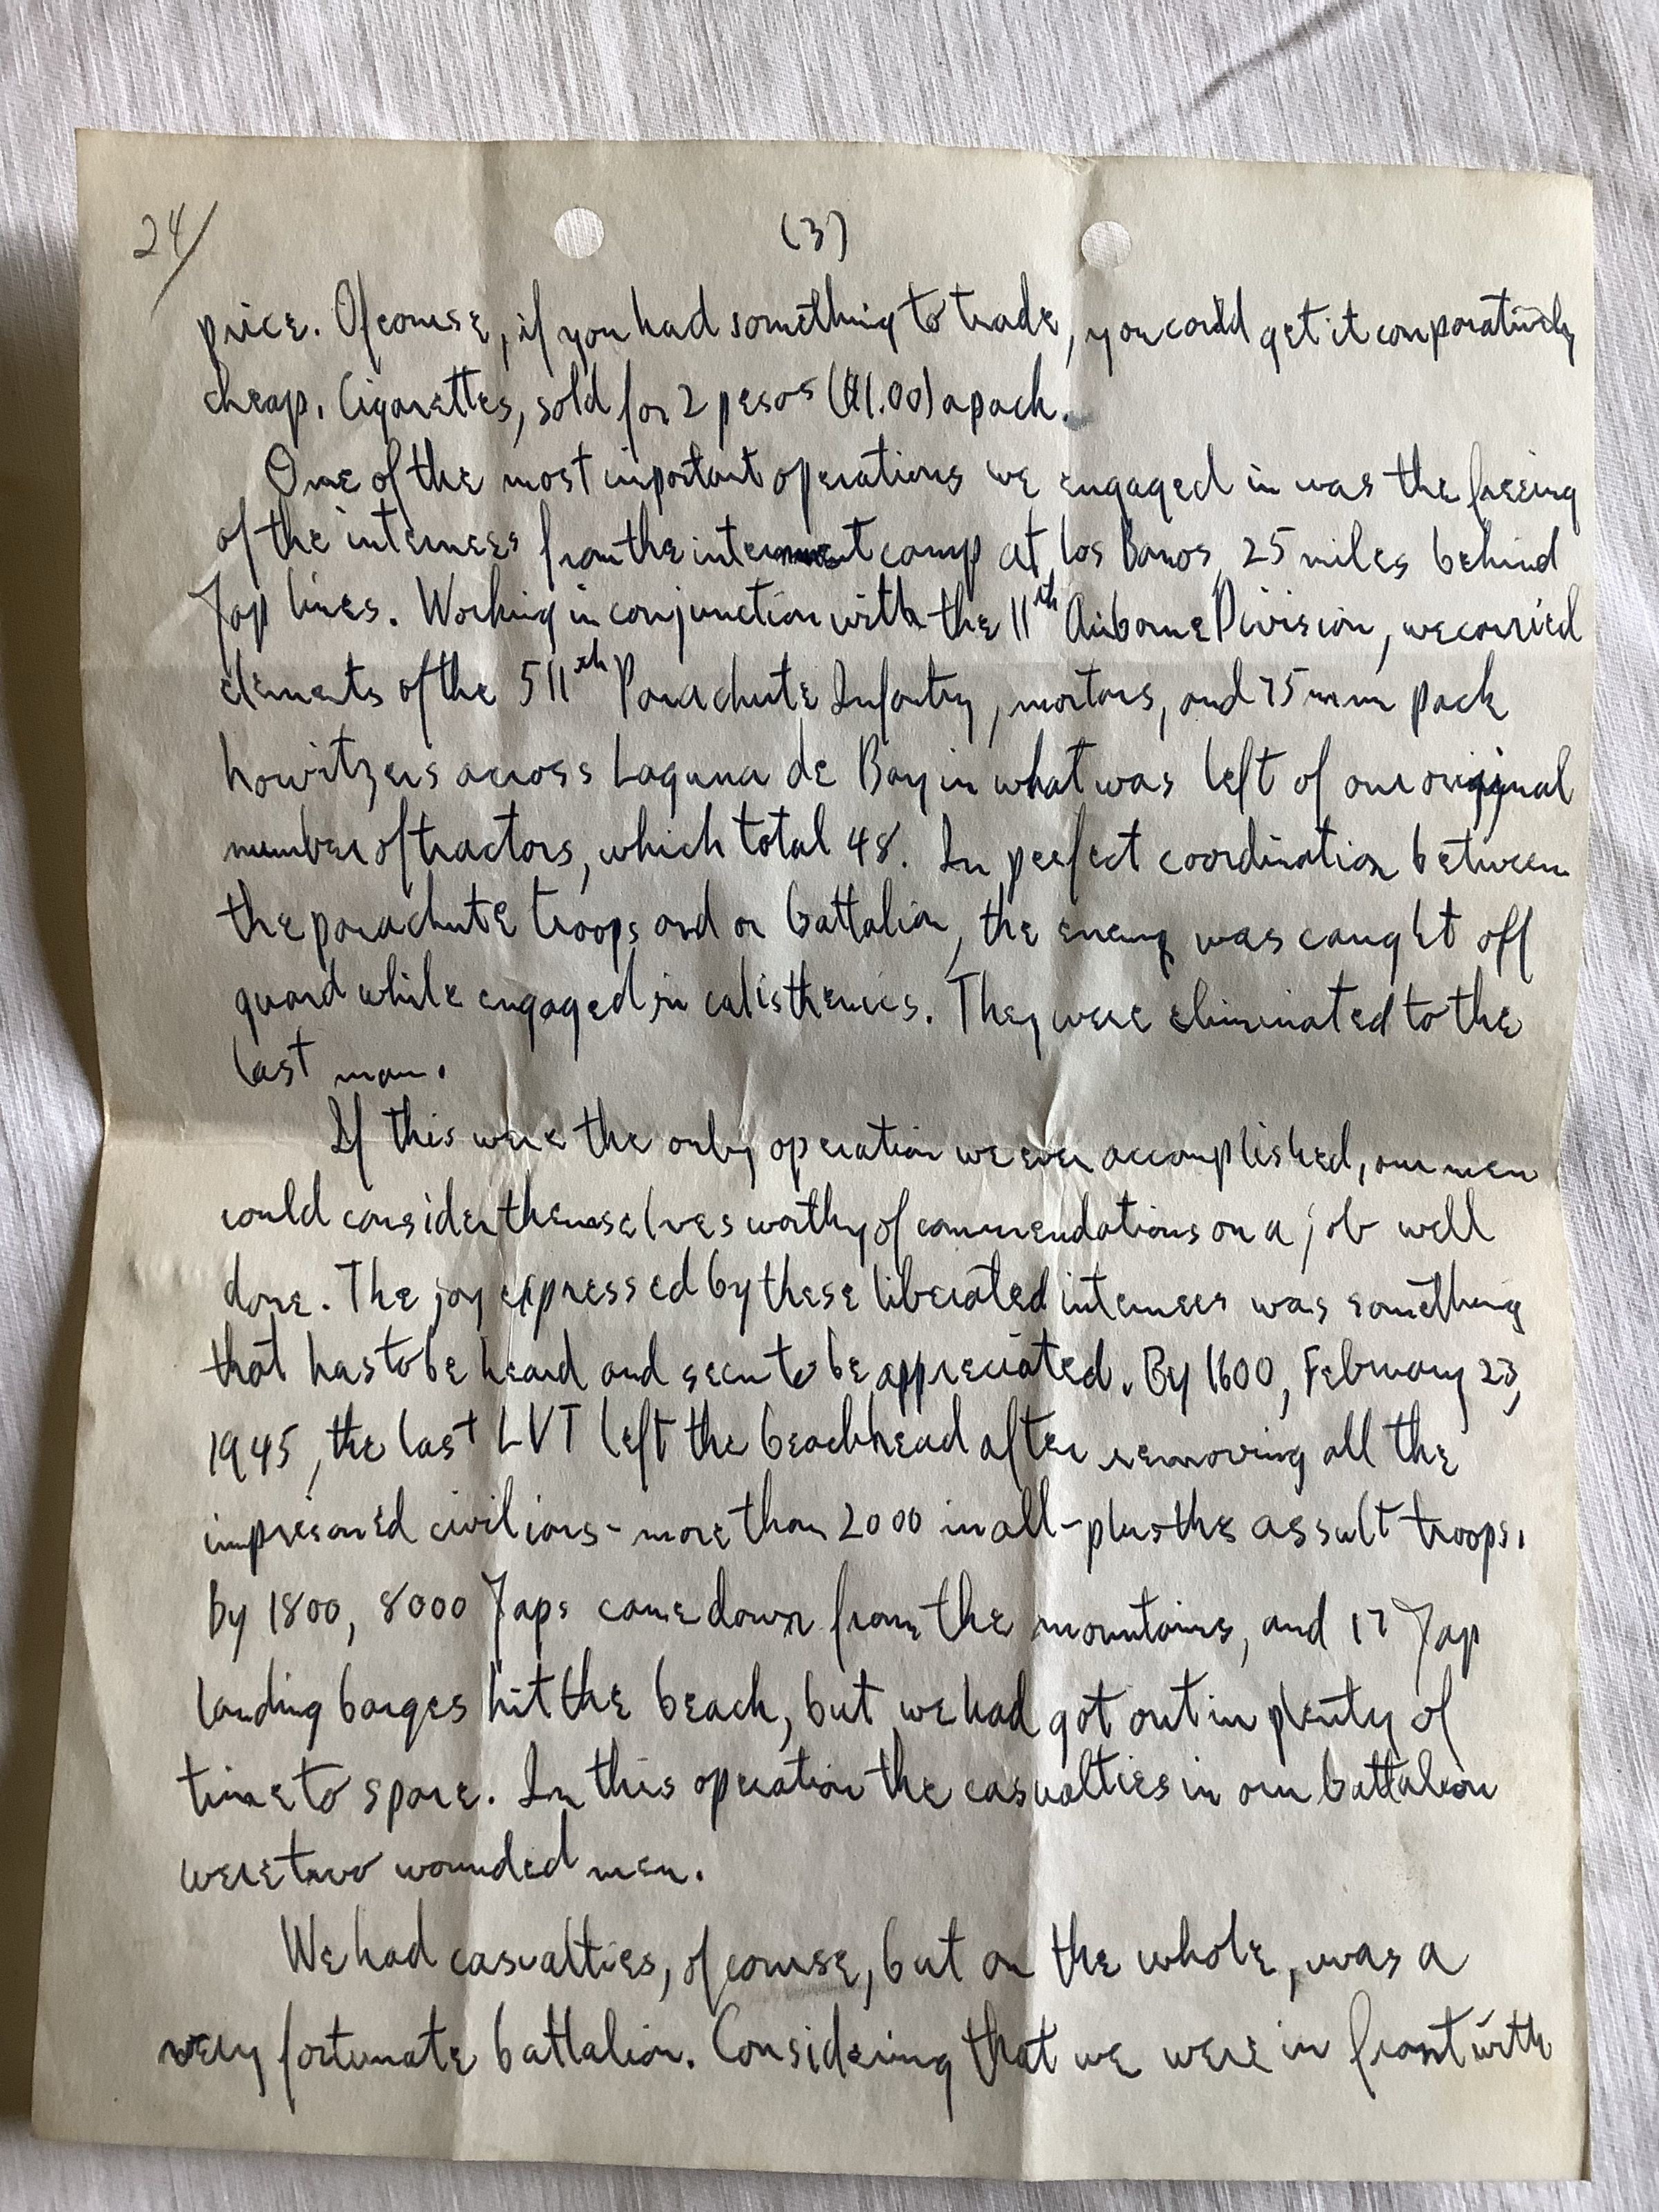 24/
(3)
price. Of course, if you had something to trade, you could get it comparatively
cheap. Cigarettes, sold for 2 pesos ($1.00) a pack.
One of the most important operations we engaged in was the freeing
of the internees from the internment camp at Los Banos, 25 miles behind
Jap lines. Working in conjunction with the 11th Airborne Division, we carried
elements of the 511th Parachute Infantry, mortars, and 75 mm pack
howitzers across Laguna de Bay in what was left of our original
number of tractors, which total 48. In perfect coordination between
the parachute troops and or battalion, the enemy was caught off
guard while engaged in calisthenics. They were eliminated to the
last man.
If this were the only operation we ever accomplished, our men
could consider themselves worthy of commendations on a job well
done. The joy expressed by these liberated internees was something
that has to be heard and seen to be appreciated. By 1600, February 23,
1945, the last LVT left the beachhead after removing all the
impresoned civilians - more than 2000 in all - plus the assult troops.
By 1800, 8000 Japs came down from the mountains, and 17 Jap
landing barges hit the beach, but we had got out in plenty of
time to spare. In this operation the casualties in our battalion
were two wounded men.
We had casualties, of course, but on the whole, was a
very fortunate battalion. Considering that we were in front with